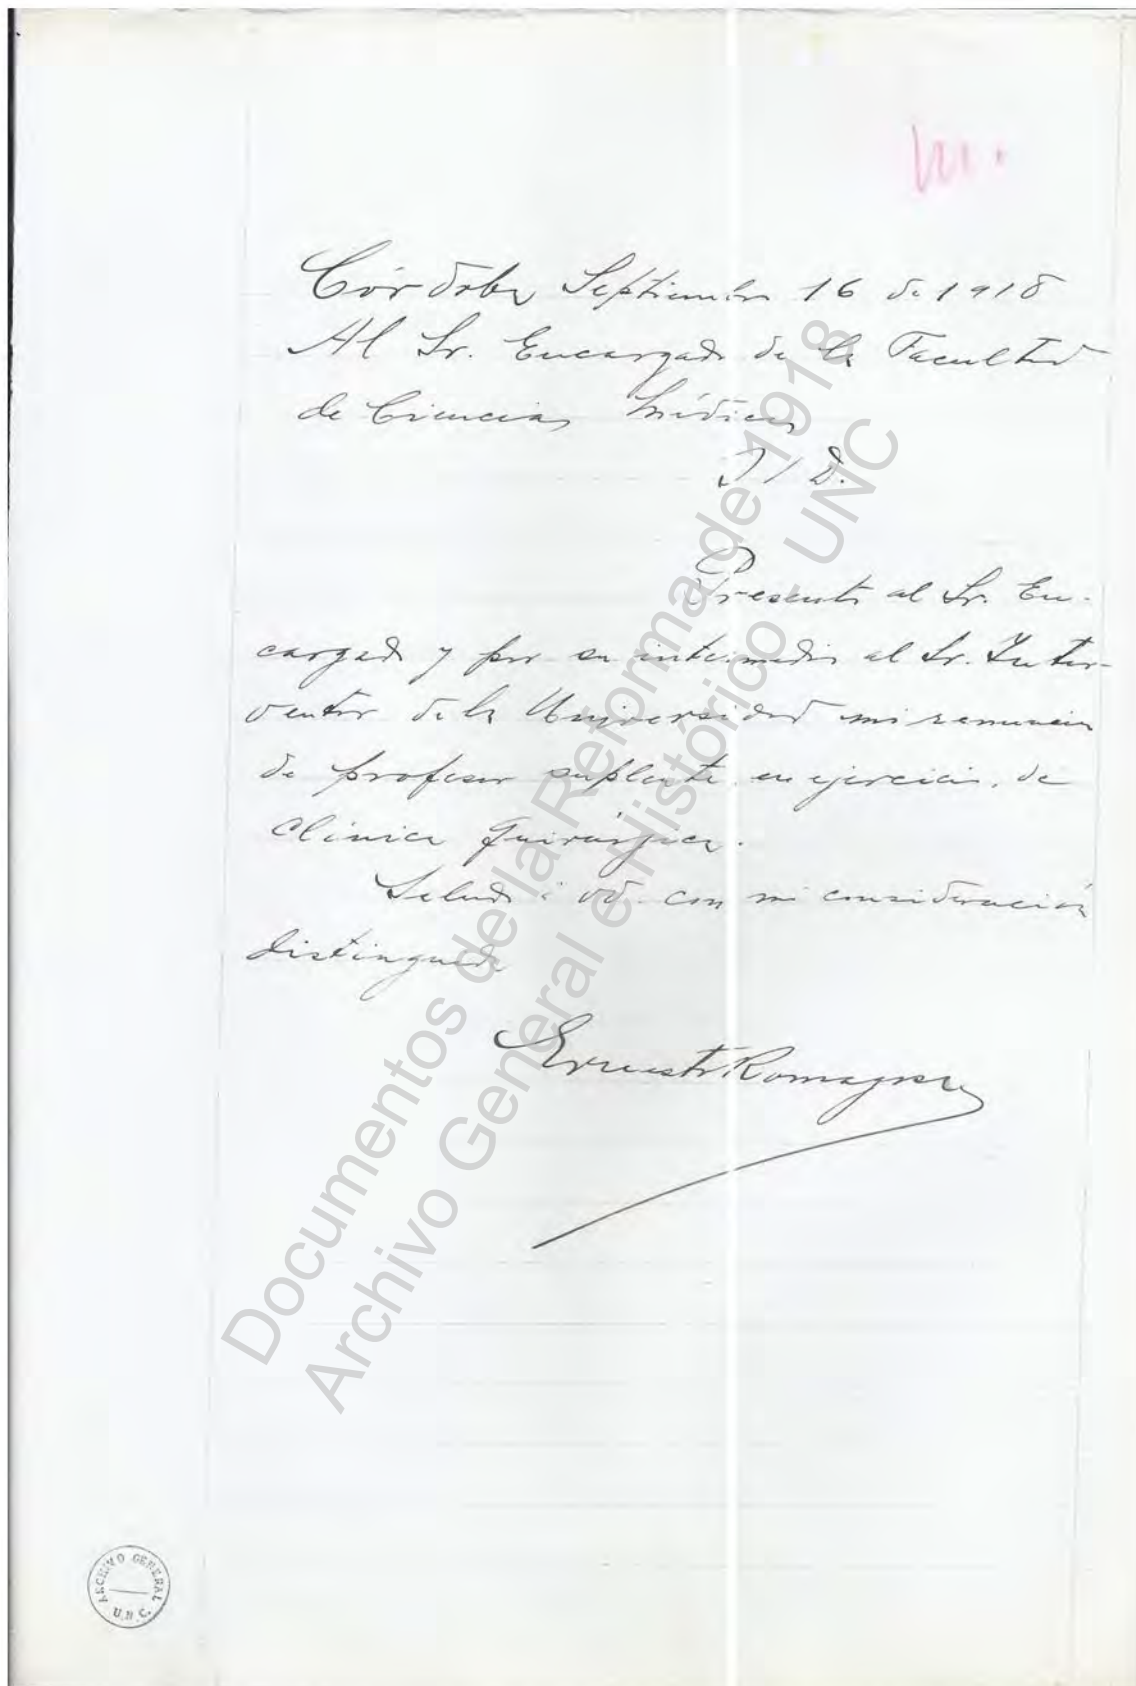 Córdoba Septiembre 16 de 1918
Al Sr. Encargado de la Facultad
de Ciencias Médicas
S/D.
Presento al Sr. En-
cargado y por su intermedio al Sr. Inter-
ventor de la Universidad mi renuncia
de profesor suplente, en ejercicio, de
Clínica Quirúrgica.
Saludo á Vd. con mi consideración
distinguida
Ernesto Romagosa
Documentos de la Reforma de 1918
Archivo General e Histórico - UNC
ARCHIVO GENERAL
U.N.C.